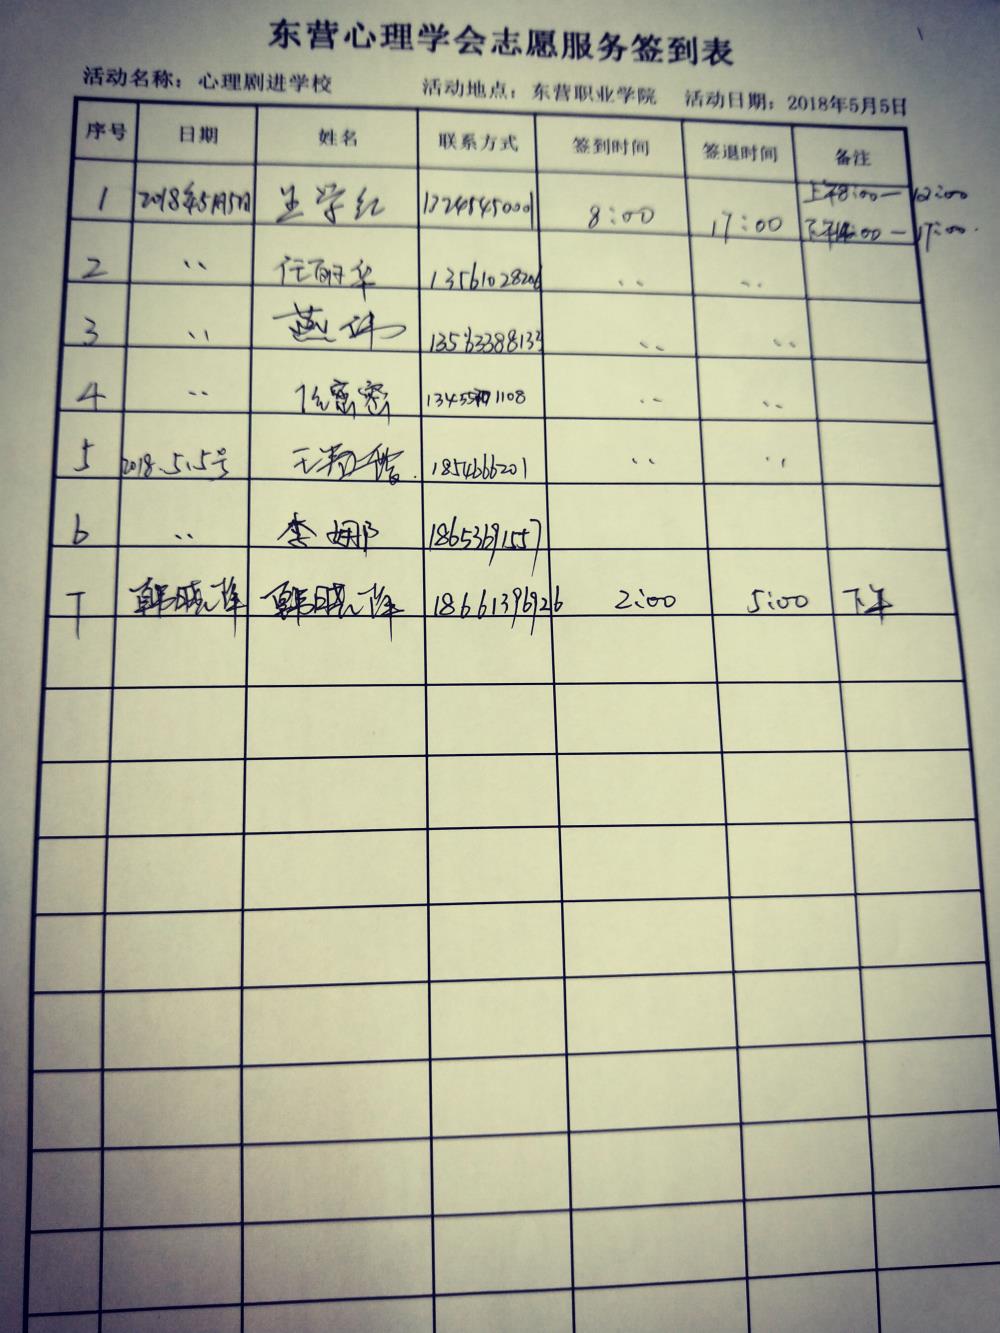 东营心理学会志愿服务签到表
活动名称：心理剧进学校 活动地点：东营职业学院 活动日期：2018年5月5日
序号 日期 姓名 联系方式 签到时间 签退时间 备注
1 2018年5月5日 王学红 13245450001 8:00 17:00 上午8:00—12:00
下午14:00—17:00.
2 〃 任丽华 13561028206 〃 〃
3 〃 燕伟 〃 〃
4 〃 密密 〃 〃
5 2018.5.5号 1854666201 〃 〃
6 〃 李娜 18653691557
7 韩晓峰 韩晓峰 18661396926 2:00 5:00 下午